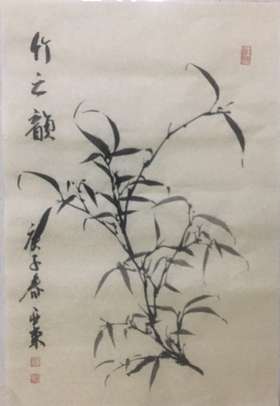 竹之韻
庚子春